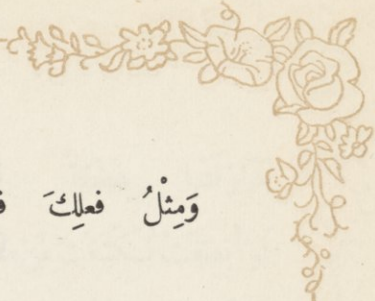 وَمِثْلُ فعلِكَ